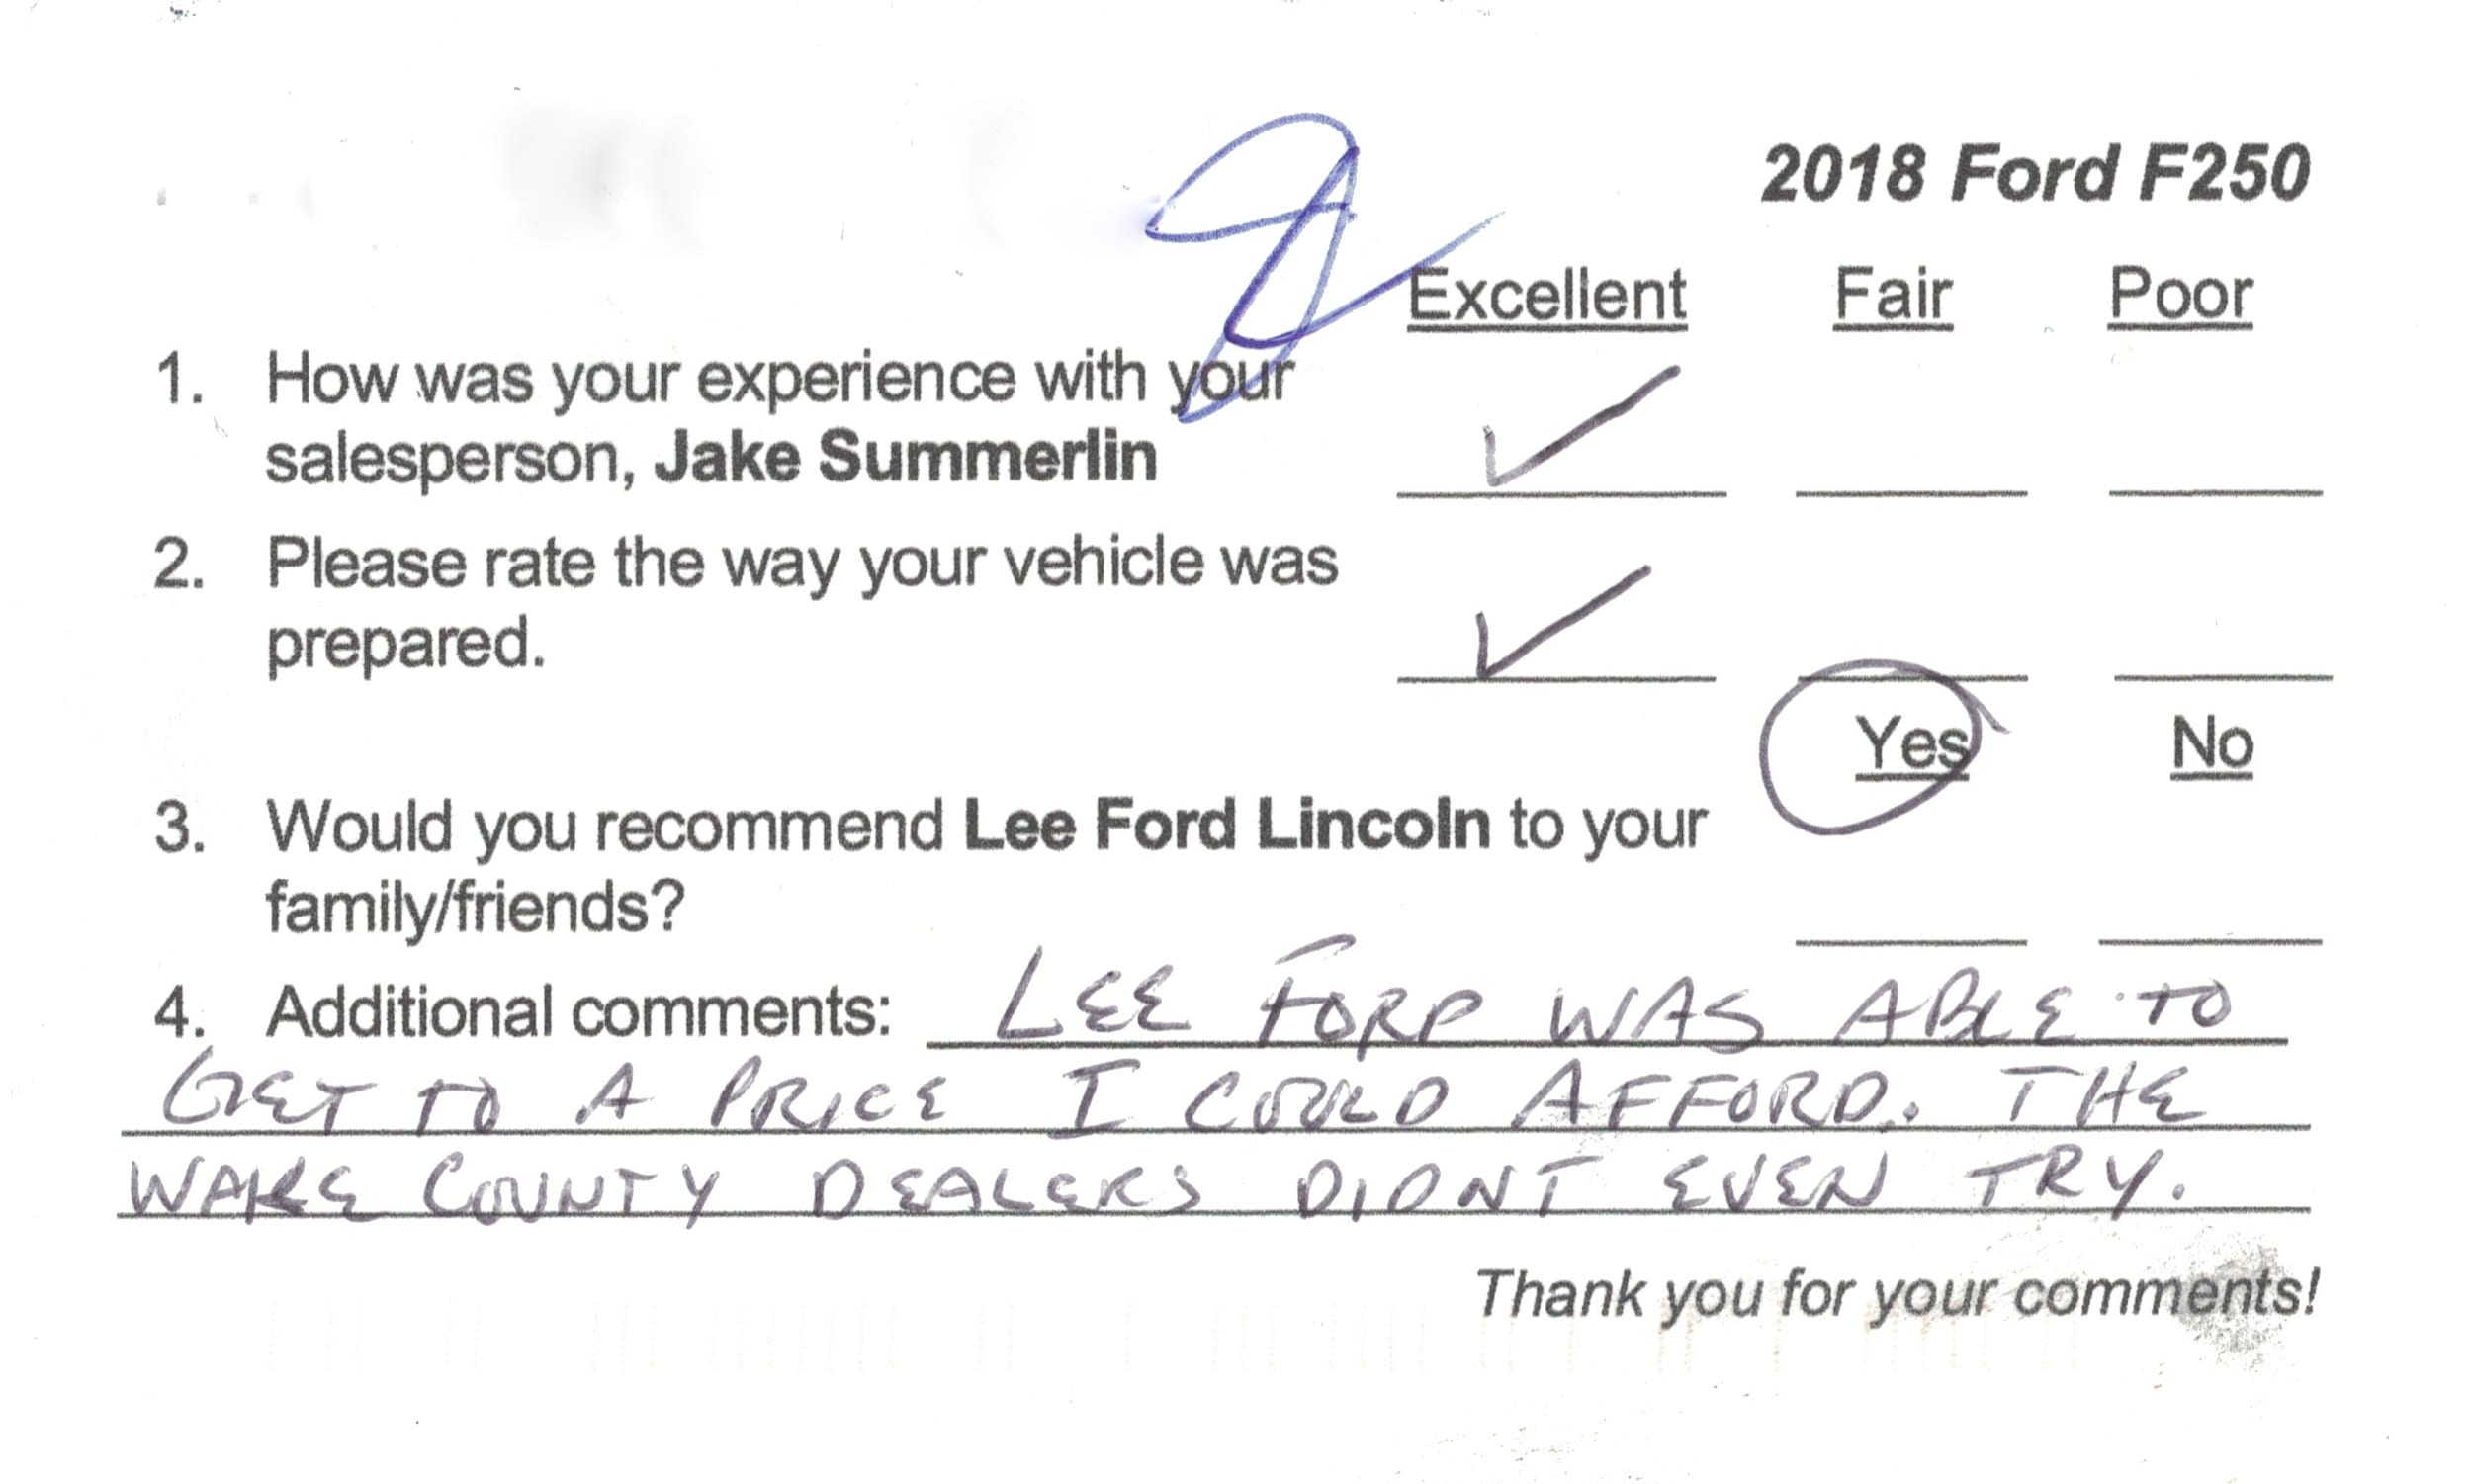 2018 Ford F250
Excellent Fair Poor
1. How was your experience with your
salesperson, Jake Summerlin
2. Please rate the way your vehicle was
prepared.
Yes No
3. Would you recommend Lee Ford Lincoln to your
family/friends?
4. Additional comments: LEE FORD WAS ABLE TO
GET TO A PRICE I COULD AFFORD. THE
WAKE COUNTY DEALERS DIDNT EVEN TRY.
Thank you for your comments!